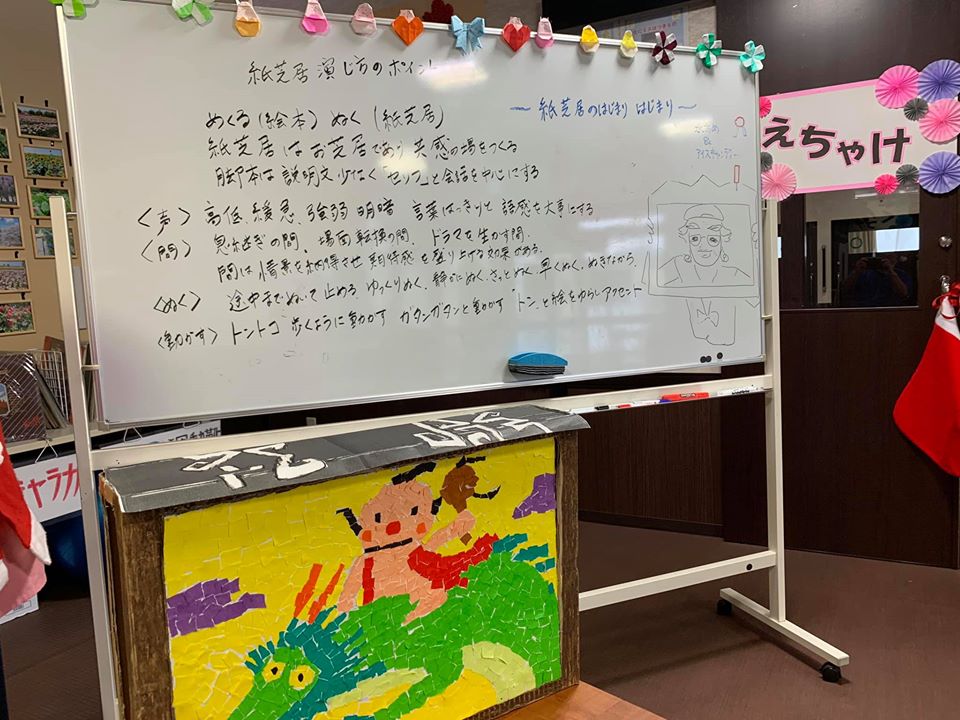 紙芝居 演じ方のポイント
〜紙芝居のはじまり はじまり〜
めくる(絵本) ぬく(紙芝居)
紙芝居はお芝居であり共感の場をつくる
脚本は説明文少なく「セリフ」と会話を中心にする
<声> 高低、緩急、強弱 明暗 言葉はっきりと 語感を大事にする
<間> 息つぎの間、場面転換の間、ドラマを生かす間、
間は情景を納得させ期待感を盛り上げる効果がある。
<ぬく> 途中までぬいて止める ゆっくりぬく、静かにぬく、さっとぬく 早くぬく、ぬきながら、
<動かす> トントコ 歩くように動かす ガタンガタンと動かす "トン"と絵をゆらしアクセント
&
アイスキャンディー
えちゃけ